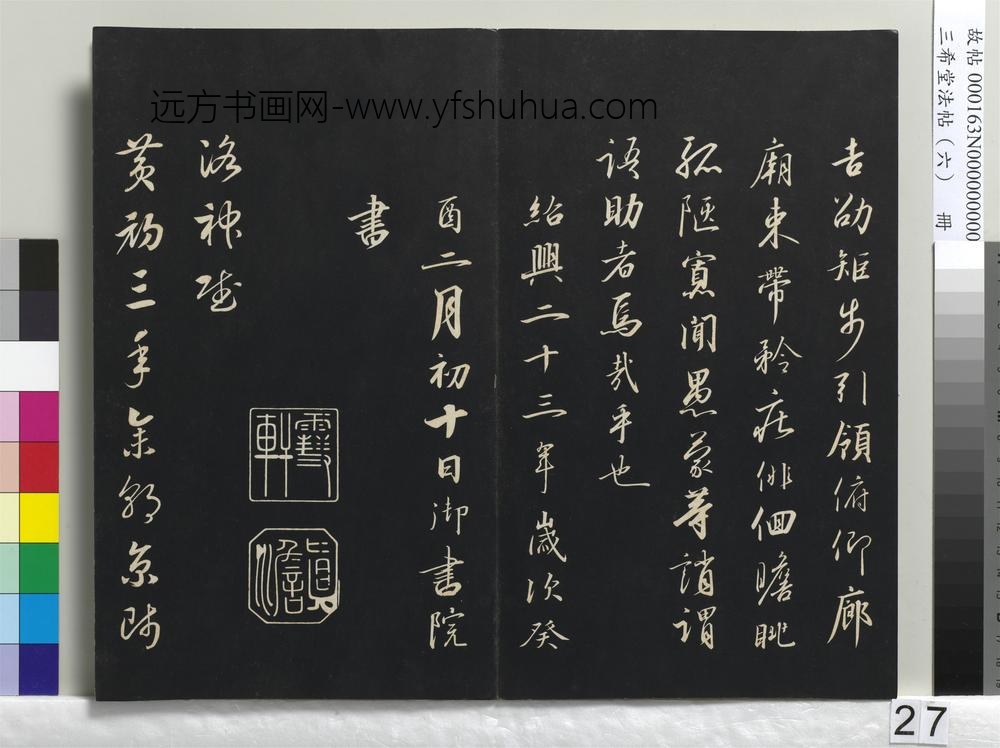 吉劭矩步引領俯仰廊
廟束帶矜莊俳佪瞻眺
孤陋寡聞愚蒙等誚謂
語助者焉哉乎也
紹興二十三年歲次癸
酉二月初十日御書院
書
洛神賦
黄初三年余朝京師
远方书画网-www.yfshuhua.com
故帖 000163N000000000
三希堂法帖（六） 冊
27